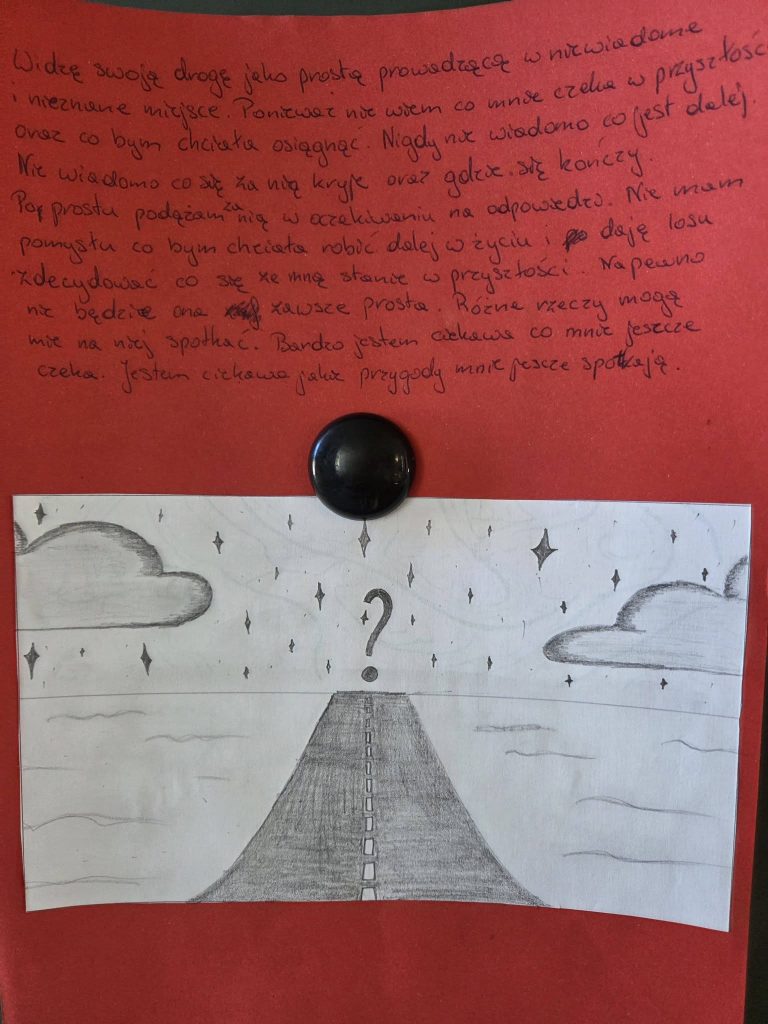 Widzę swoją drogę jako prostą prowadzącą w niewiadome
i nieznane miejsce. Ponieważ nie wiem co mnie czeka w przyszłości
oraz co bym chciała osiągnąć. Nigdy nie wiadomo co jest dalej.
Nie wiadomo co się za nią kryje oraz gdzie się kończy.
Po prostu podążam za nią w oczekiwaniu na odpowiedzi. Nie mam
pomysłu co bym chciała robić dalej w życiu i daję losu
zdecydować co się ze mną stanie w przyszłości. Napewno
nie będzie ona zawsze prosta. Różne rzeczy mogą
mie na niej spotkać. Bardzo jestem ciekawa co mnie jeszcze
czeka. Jestem ciekawa jakie przygody mnie jescze spotkają.
?